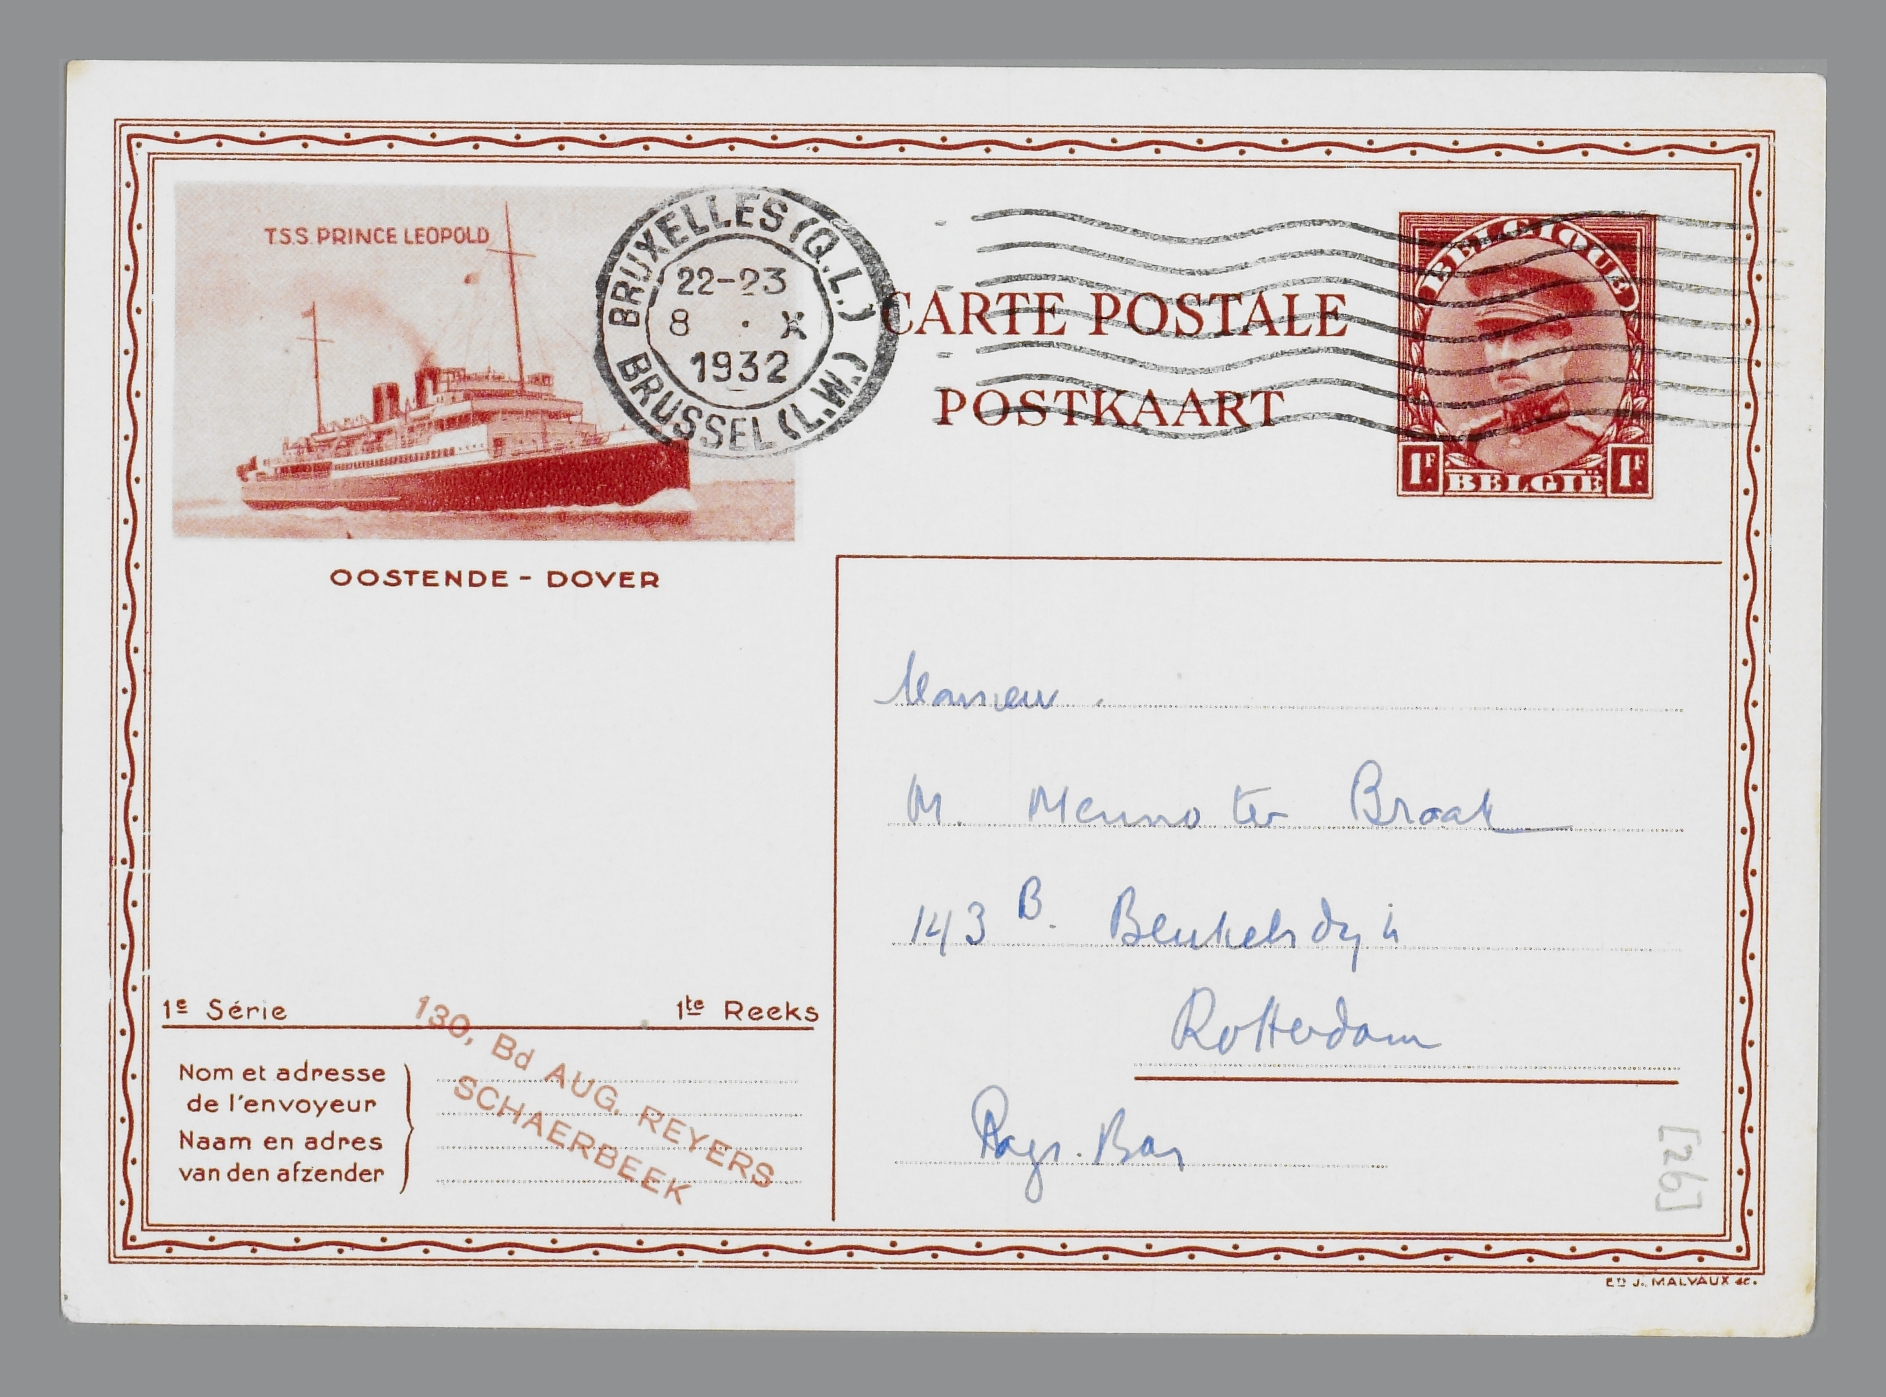 T.S.S. PRINCE LEOPOLD
OOSTENDE - DOVER
BRUXELLES (Q.L.)
22-23
8 . X
1932
BRUSSEL (L.W.)
CARTE POSTALE
POSTKAART
BELGIQUE
1F. BELGIË 1F.
Monsieur
M. Menno ter Braak
143 B. Beukelsdijk
Rotterdam
Pays-Bas
1e Série 1te Reeks
Nom et adresse
de l'envoyeur
Naam en adres
van den afzender
130, Bd AUG. REYERS
SCHAERBEEK
[26]
ED J. MALVAUX sc.